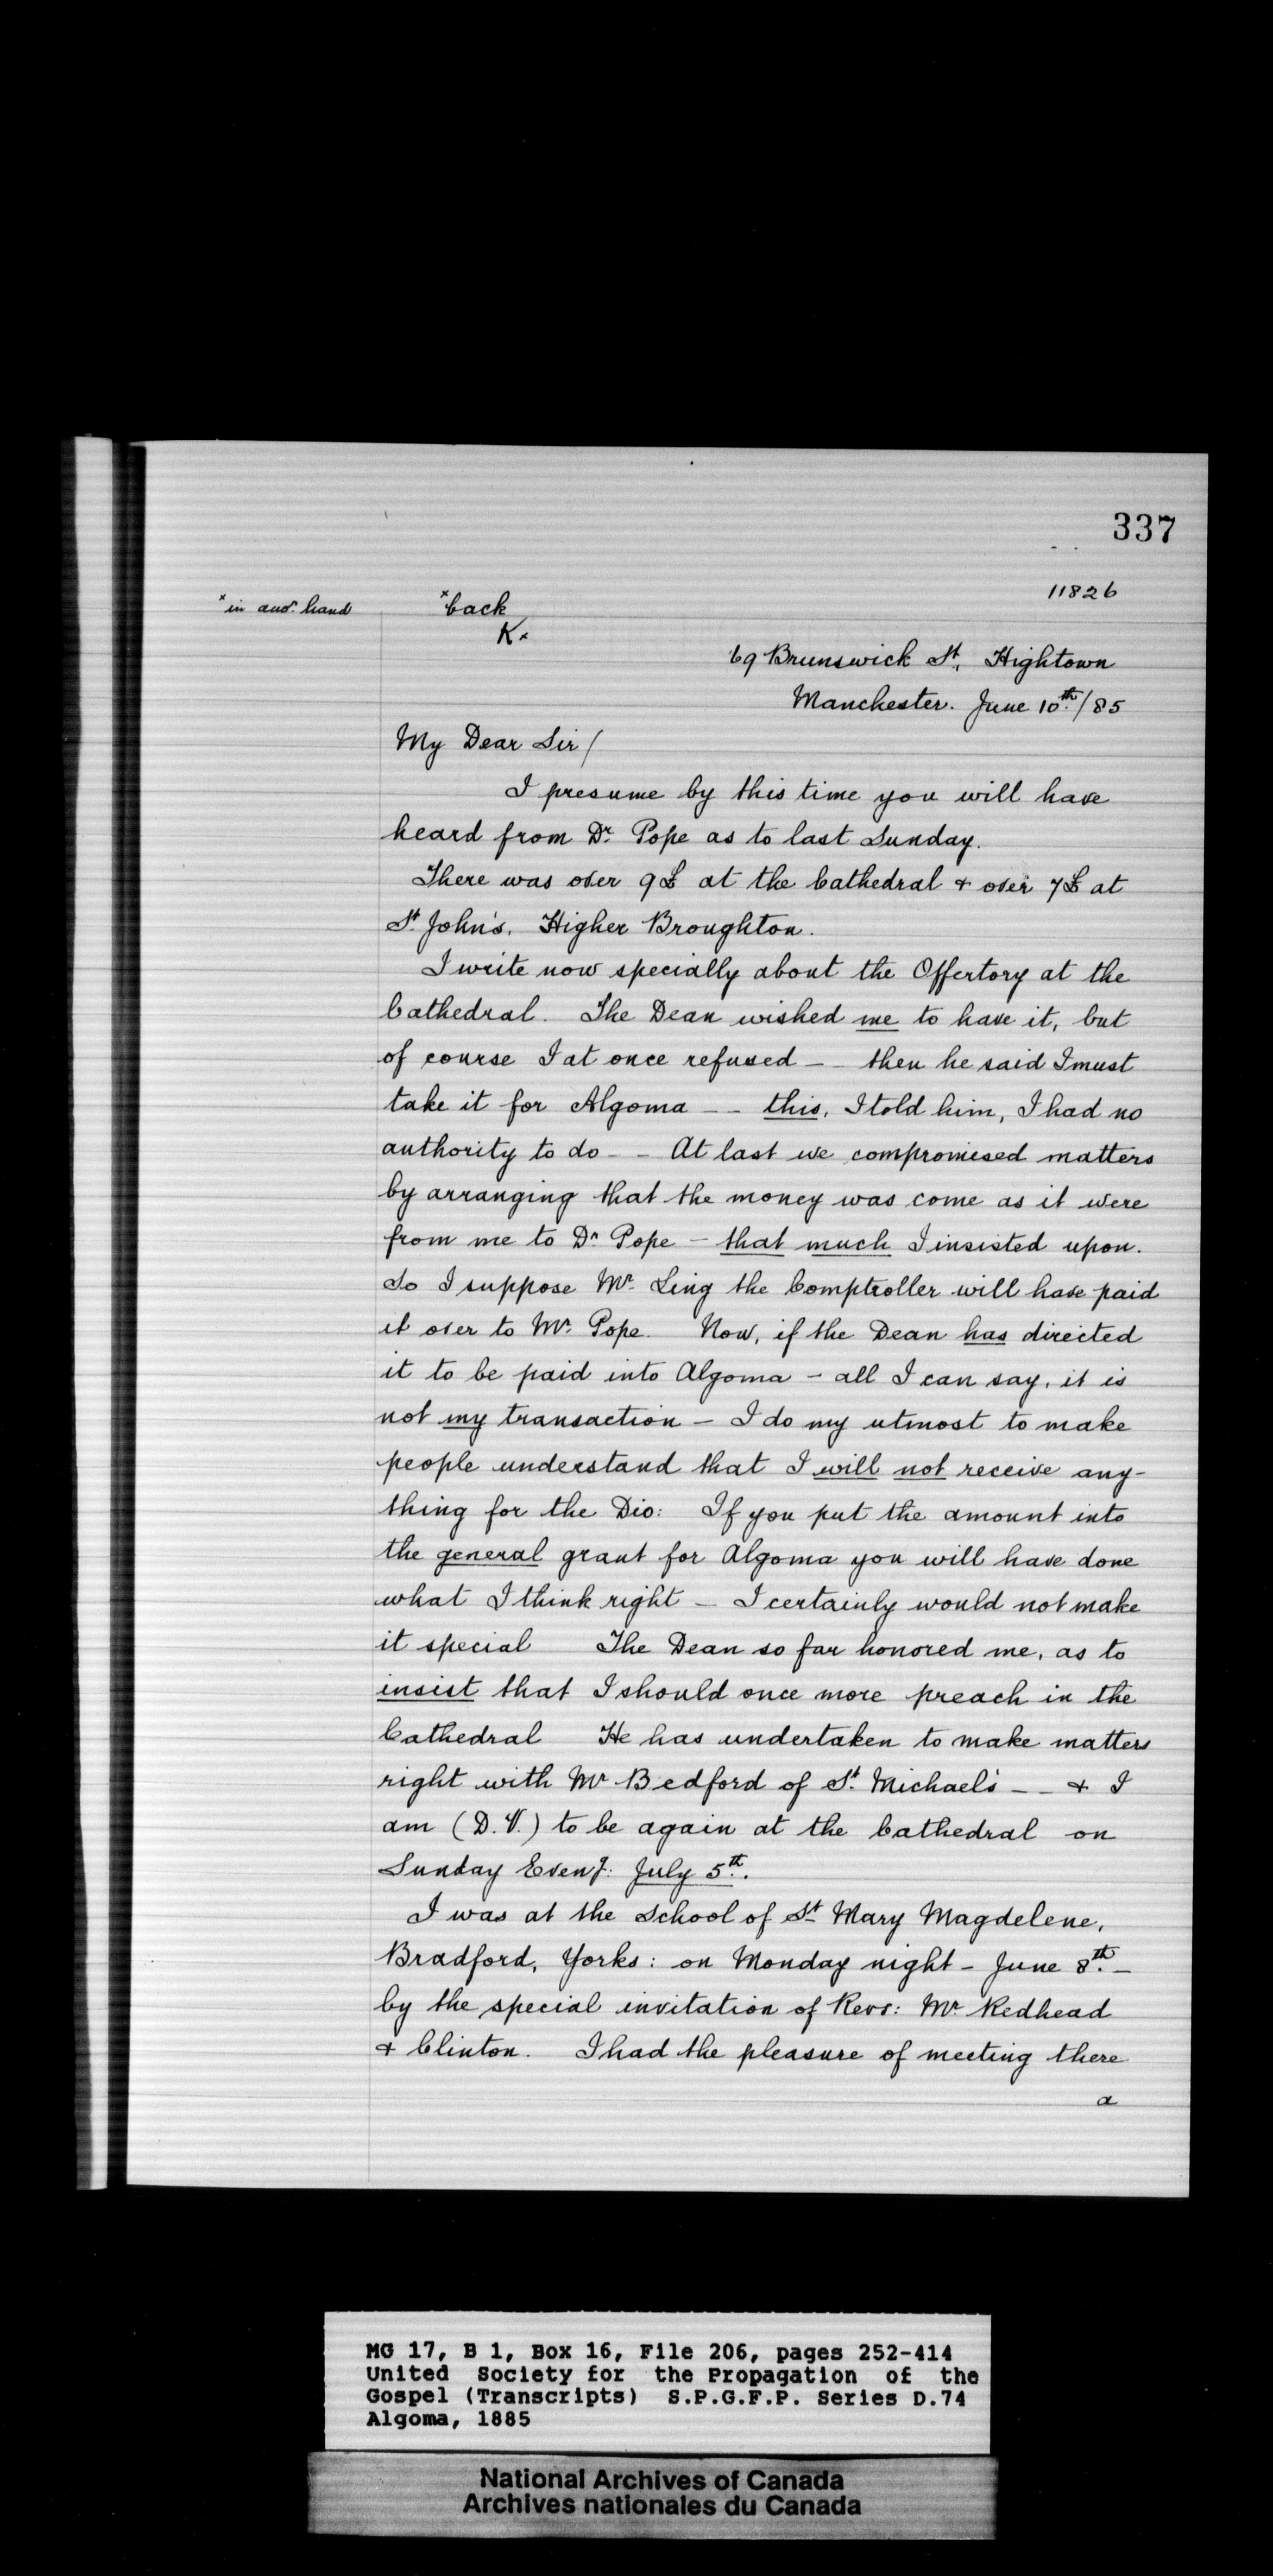 337
11826
ˣin anoʳ. hand
ˣback
Kˣ
69 Brunswick St, Hightown
Manchester. June 10th/85
My Dear Sir/
I presume by this time you will have
heard from Dr. Pope as to last Sunday.
There was over 9£ at the Cathedral & over 7£ at
St. John's, Higher Broughton.
I write now specially about the Offertory at the
Cathedral. The Dean wished me to have it, but
of course I at once refused - - then he said I must
take it for Algoma - - this, I told him, I had no
authority to do - - At last we compromised matters
by arranging that the money was come as it were
from me to Dr Pope - that much I insisted upon.
So I suppose Mr. Ling the Comptroller will have paid
it over to Mr. Pope. Now, if the Dean has directed
it to be paid into Algoma - all I can say, it is
not my transaction - I do my utmost to make
people understand that I will not receive any-
thing for the Dio: If you put the amount into
the general grant for Algoma you will have done
what I think right - I certainly would not make
it special The Dean so far honored me, as to
insist that I should once more preach in the
Cathedral He has undertaken to make matters
right with Mr Bedford of St. Michael's - - & I
am (D.V.) to be again at the Cathedral on
Sunday Eveng: July 5th.
I was at the School of St Mary Magdelene,
Bradford, Yorks: on Monday night - June 8th. -
by the special invitation of Revs: Mr Redhead
& Clinton. I had the pleasure of meeting there
a
MG 17, B 1, Box 16, File 206, pages 252-414
United Society for the Propagation of the
Gospel (Transcripts) S.P.G.F.P. Series D.74
Algoma, 1885
National Archives of Canada
Archives nationales du Canada